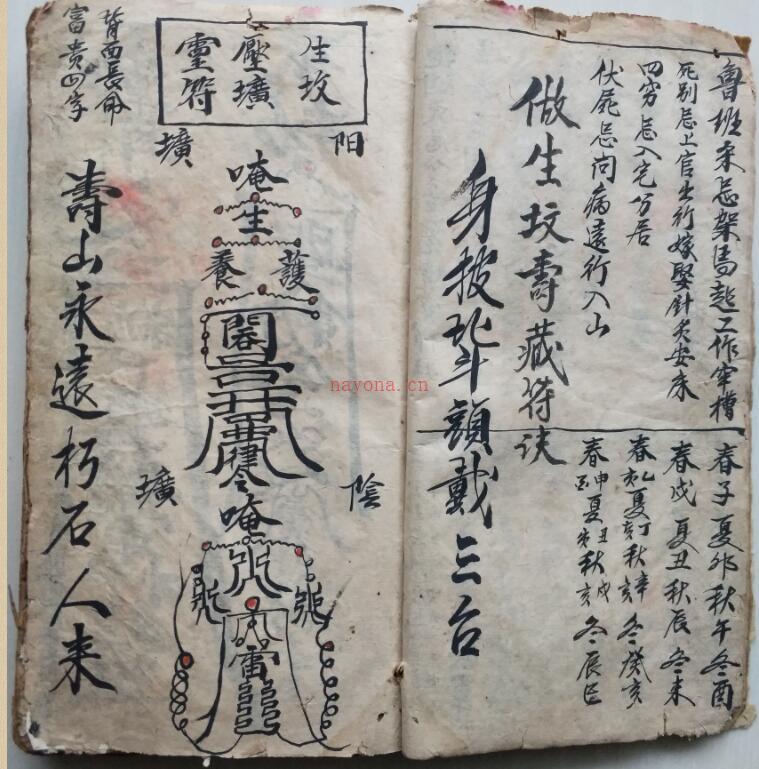 魯班未忌架馬起工作窂槽
死別忌上官出行嫁娶針灸安床
四穷忌入宅分居
伏屍忌问病遠行入山
春子夏卯秋午冬酉
春戍夏丑秋辰冬未
春乙亥夏丁亥秋辛亥冬癸亥
冬辰巳
做生坟壽藏符诀
身披北斗頭戴三台
生坟
壓壙
靈符
背面長命
富贵四字
阳
壙
唵
生
養護
唵
陰
壙
雷
壽山永遠朽石人来
nayona.cn